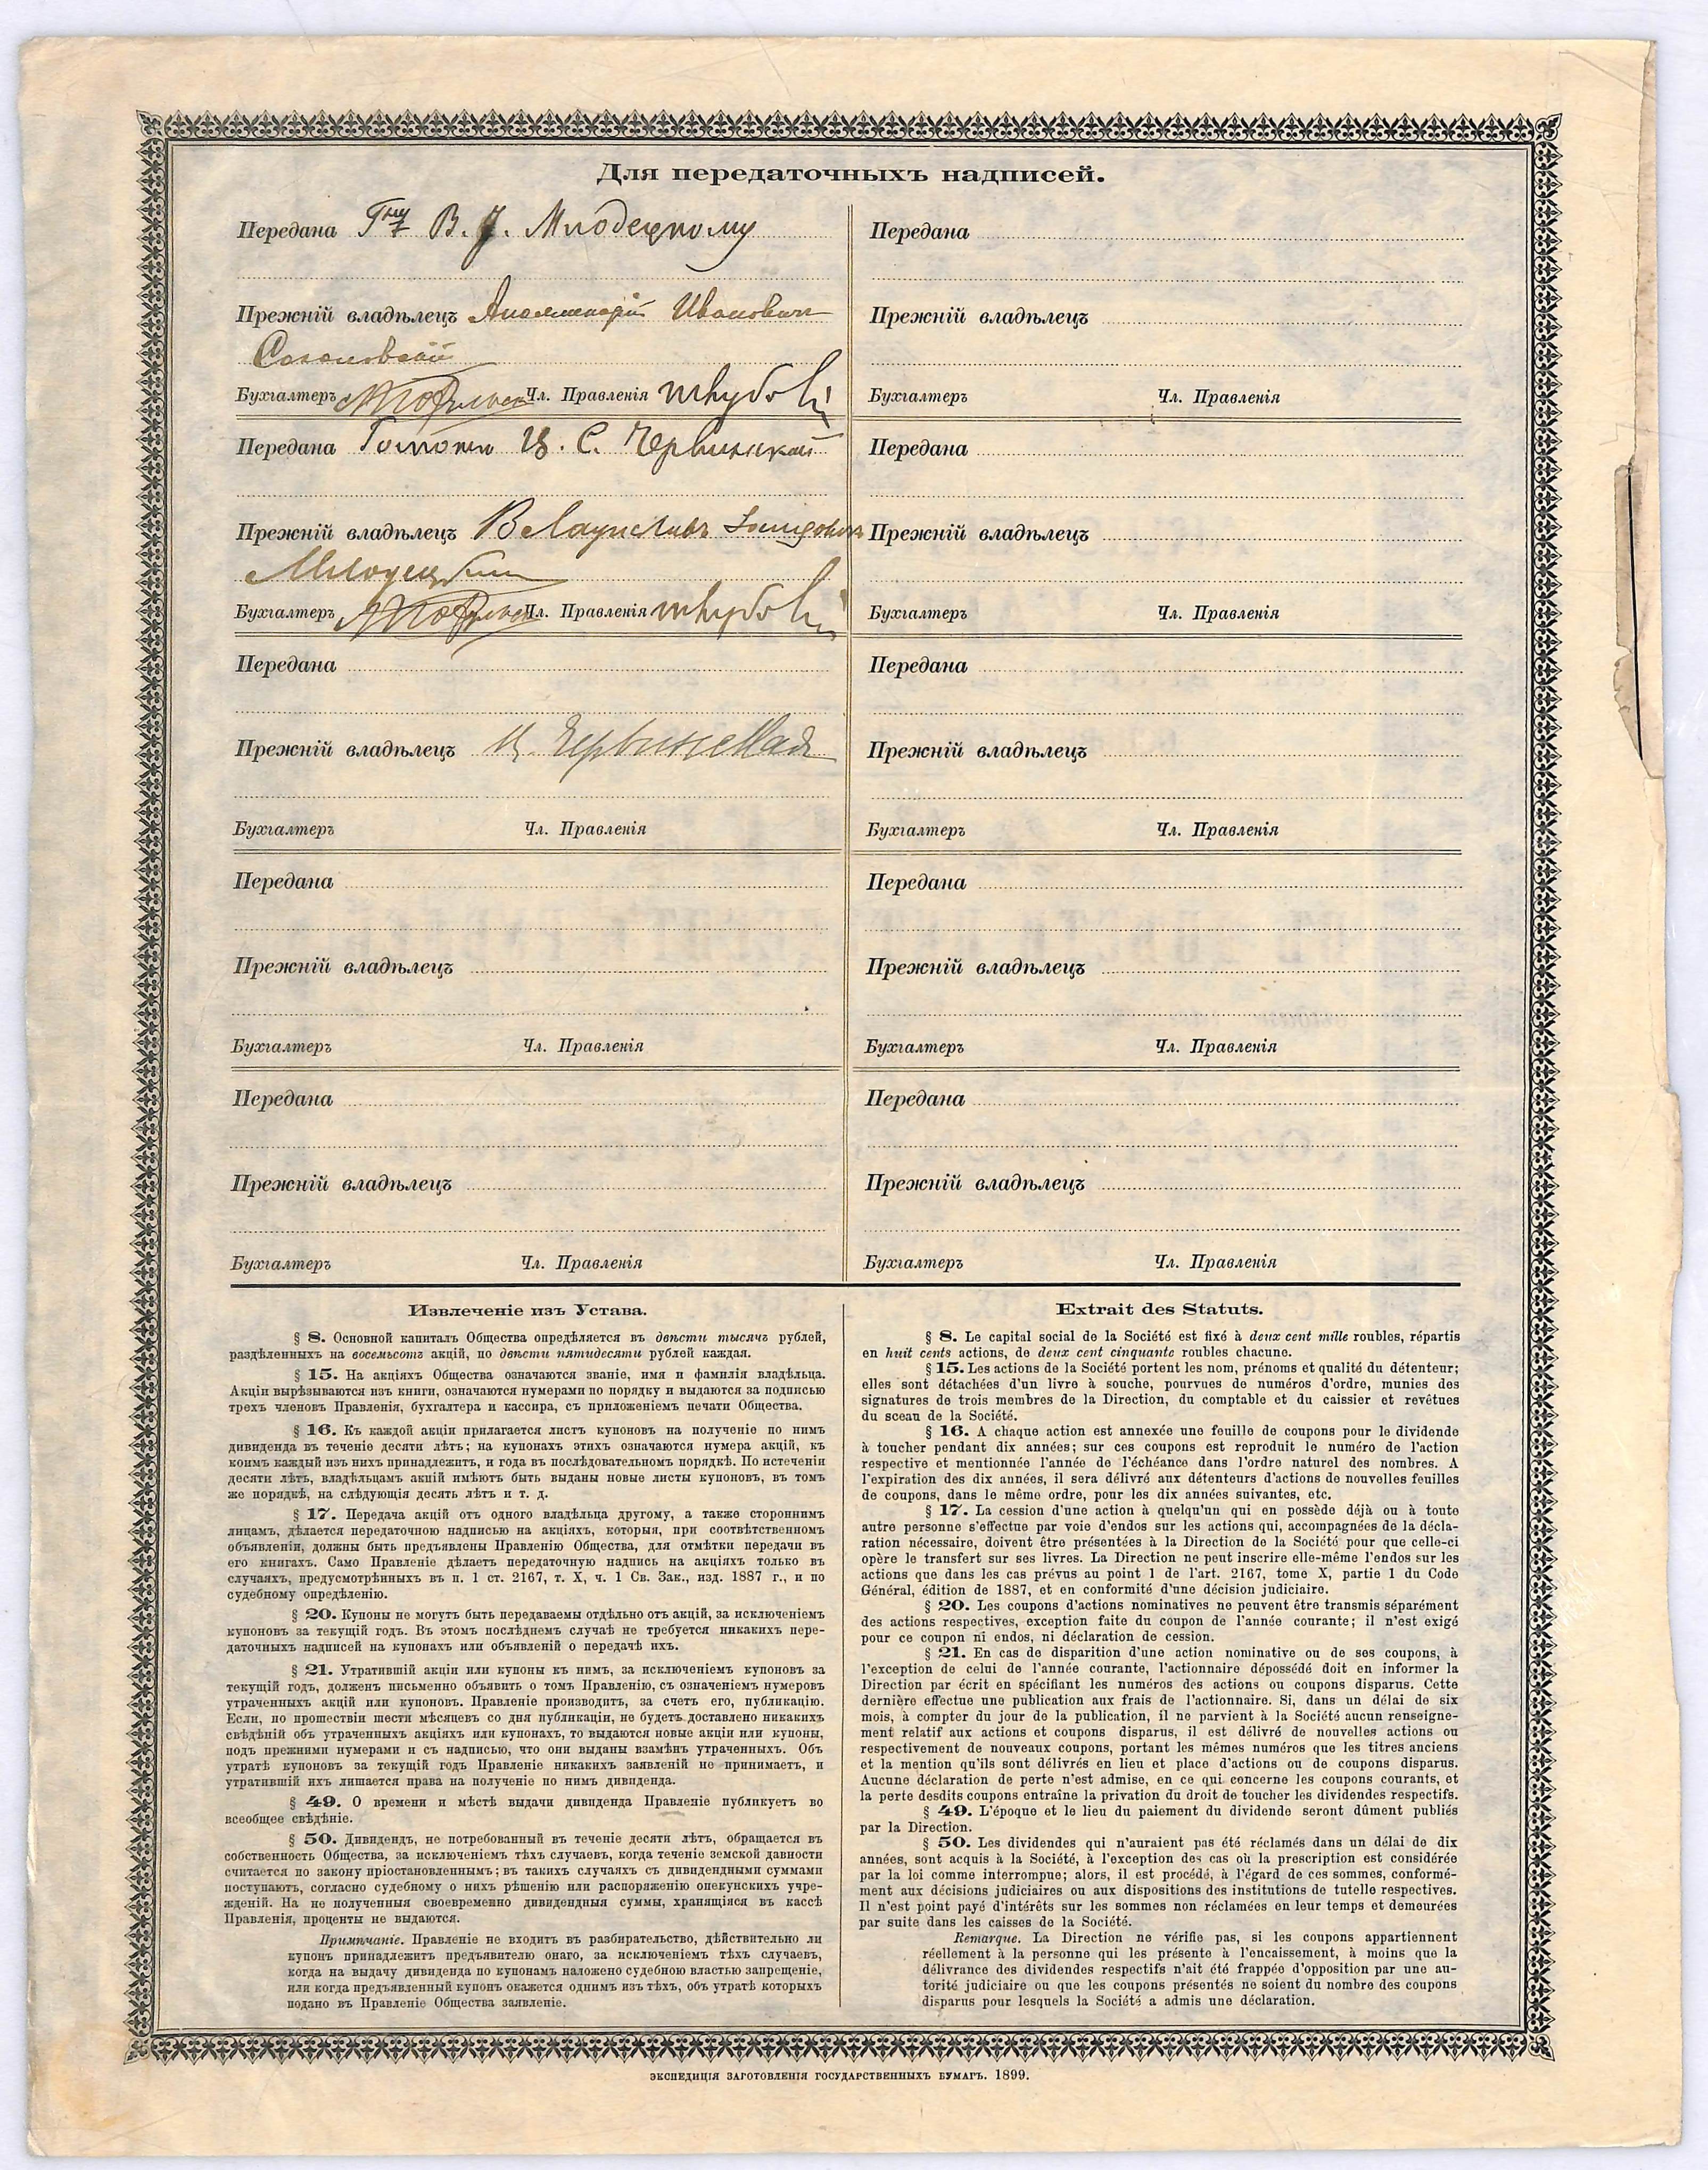 Для передаточныхъ надписей.
Передана Гну В. Млодецкому
Прежній владѣлецъ Ивановичъ
Бухгалтеръ Чл. Правленія
Передана Ц. С. Червинской
Прежній владѣлецъ
Бухгалтеръ Чл. Правленія
Передана
Прежній владѣлецъ Ц. Червинская
Бухгалтеръ Чл. Правленія
Передана
Прежній владѣлецъ
Бухгалтеръ Чл. Правленія
Передана
Прежній владѣлецъ
Бухгалтеръ Чл. Правленія
Передана
Прежній владѣлецъ
Бухгалтеръ Чл. Правленія
Передана
Прежній владѣлецъ
Бухгалтеръ Чл. Правленія
Передана
Прежній владѣлецъ
Бухгалтеръ Чл. Правленія
Передана
Прежній владѣлецъ
Бухгалтеръ Чл. Правленія
Передана
Прежній владѣлецъ
Бухгалтеръ Чл. Правленія
Извлеченіе изъ Устава.
§ 8. Основной капиталъ Общества опредѣляется въ двѣсти тысячъ рублей,
раздѣленныхъ на восемьсотъ акцій, по двѣсти пятидесяти рублей каждая.
§ 15. На акціяхъ Общества означаются званіе, имя и фамилія владѣльца.
Акціи вырѣзываются изъ книги, означаются нумерами по порядку и выдаются за подписью
трехъ членовъ Правленія, бухгалтера и кассира, съ приложеніемъ печати Общества.
§ 16. Къ каждой акціи прилагается листъ купоновъ на полученіе по нимъ
дивиденда въ теченіе десяти лѣтъ; на купонахъ этихъ означаются нумера акцій, къ
коимъ каждый изъ нихъ принадлежитъ, и года въ послѣдовательномъ порядкѣ. По истеченіи
десяти лѣтъ, владѣльцамъ акцій имѣютъ быть выданы новые листы купоновъ, въ томъ
же порядкѣ, на слѣдующія десять лѣтъ и т. д.
§ 17. Передача акцій отъ одного владѣльца другому, а также стороннимъ
лицамъ, дѣлается передаточною надписью на акціяхъ, которыя, при соотвѣтственномъ
объявленіи, должны быть предъявлены Правленію Общества, для отмѣтки передачи въ
его книгахъ. Само Правленіе дѣлаетъ передаточную надпись на акціяхъ только въ
случаяхъ, предусмотрѣнныхъ въ п. 1 ст. 2167, т. X, ч. 1 Св. Зак., изд. 1887 г., и по
судебному опредѣленію.
§ 20. Купоны не могутъ быть передаваемы отдѣльно отъ акцій, за исключеніемъ
купоновъ за текущій годъ. Въ этомъ послѣднемъ случаѣ не требуется никакихъ пере-
даточныхъ надписей на купонахъ или объявленій о передачѣ ихъ.
§ 21. Утратившій акціи или купоны къ нимъ, за исключеніемъ купоновъ за
текущій годъ, долженъ письменно объявить о томъ Правленію, съ означеніемъ нумеровъ
утраченныхъ акцій или купоновъ. Правленіе производитъ, за счетъ его, публикацію.
Если, по прошествіи шести мѣсяцевъ со дня публикаціи, не будетъ доставлено никакихъ
свѣдѣній объ утраченныхъ акціяхъ или купонахъ, то выдаются новые акціи или купоны,
подъ прежними нумерами и съ надписью, что они выданы взамѣнъ утраченныхъ. Объ
утратѣ купоновъ за текущій годъ Правленіе никакихъ заявленій не принимаетъ, и
утратившій ихъ лишается права на полученіе по нимъ дивиденда.
§ 49. О времени и мѣстѣ выдачи дивиденда Правленіе публикуетъ во
всеобщее свѣдѣніе.
§ 50. Дивидендъ, не потребованный въ теченіе десяти лѣтъ, обращается въ
собственность Общества, за исключеніемъ тѣхъ случаевъ, когда теченіе земской давности
считается по закону пріостановленнымъ; въ такихъ случаяхъ съ дивидендными суммами
поступаютъ, согласно судебному о нихъ рѣшенію или распоряженію опекунскихъ учре-
жденій. На не полученныя своевременно дивидендныя суммы, хранящіяся въ кассѣ
Правленія, проценты не выдаются.
Примѣчаніе. Правленіе не входитъ въ разбирательство, дѣйствительно ли
купонъ принадлежитъ предъявителю онаго, за исключеніемъ тѣхъ случаевъ,
когда на выдачу дивиденда по купонамъ наложено судебною властью запрещеніе,
или когда предъявленный купонъ окажется однимъ изъ тѣхъ, объ утратѣ которыхъ
подано въ Правленіе Общества заявленіе.
Extrait des Statuts.
§ 8. Le capital social de la Société est fixé à deux cent mille roubles, répartis
en huit cents actions, de deux cent cinquante roubles chacune.
§ 15. Les actions de la Société portent les nom, prénoms et qualité du détenteur;
elles sont détachées d'un livre à souche, pourvues de numéros d'ordre, munies des
signatures de trois membres de la Direction, du comptable et du caissier et revêtues
du sceau de la Société.
§ 16. A chaque action est annexée une feuille de coupons pour le dividende
à toucher pendant dix années; sur ces coupons est reproduit le numéro de l'action
respective et mentionnée l'année de l'échéance dans l'ordre naturel des nombres. A
l'expiration des dix années, il sera délivré aux détenteurs d'actions de nouvelles feuilles
de coupons, dans le même ordre, pour les dix années suivantes, etc.
§ 17. La cession d'une action à quelqu'un qui en possède déjà ou à toute
autre personne s'effectue par voie d'endos sur les actions qui, accompagnées de la décla-
ration nécessaire, doivent être présentées à la Direction de la Société pour que celle-ci
opère le transfert sur ses livres. La Direction ne peut inscrire elle-même l'endos sur les
actions que dans les cas prévus au point 1 de l'art. 2167, tome X, partie 1 du Code
Général, édition de 1887, et en conformité d'une décision judiciaire.
§ 20. Les coupons d'actions nominatives ne peuvent être transmis séparément
des actions respectives, exception faite du coupon de l'année courante; il n'est exigé
pour ce coupon ni endos, ni déclaration de cession.
§ 21. En cas de disparition d'une action nominative ou de ses coupons, à
l'exception de celui de l'année courante, l'actionnaire dépossédé doit en informer la
Direction par écrit en spécifiant les numéros des actions ou coupons disparus. Cette
dernière effectue une publication aux frais de l'actionnaire. Si, dans un délai de six
mois, à compter du jour de la publication, il ne parvient à la Société aucun renseigne-
ment relatif aux actions et coupons disparus, il est délivré de nouvelles actions ou
respectivement de nouveaux coupons, portant les mêmes numéros que les titres anciens
et la mention qu'ils sont délivrés en lieu et place d'actions ou de coupons disparus.
Aucune déclaration de perte n'est admise, en ce qui concerne les coupons courants, et
la perte desdits coupons entraîne la privation du droit de toucher les dividendes respectifs.
§ 49. L'époque et le lieu du paiement du dividende seront dûment publiés
par la Direction.
§ 50. Les dividendes qui n'auraient pas été réclamés dans un délai de dix
années, sont acquis à la Société, à l'exception des cas où la prescription est considérée
par la loi comme interrompue; alors, il est procédé, à l'égard de ces sommes, conformé-
ment aux décisions judiciaires ou aux dispositions des institutions de tutelle respectives.
Il n'est point payé d'intérêts sur les sommes non réclamées en leur temps et demeurées
par suite dans les caisses de la Société.
Remarque. La Direction ne vérifie pas, si les coupons appartiennent
réellement à la personne qui les présente à l'encaissement, à moins que la
délivrance des dividendes respectifs n'ait été frappée d'opposition par une au-
torité judiciaire ou que les coupons présentés ne soient du nombre des coupons
disparus pour lesquels la Société a admis une déclaration.
ЭКСПЕДИЦІЯ ЗАГОТОВЛЕНІЯ ГОСУДАРСТВЕННЫХЪ БУМАГЪ. 1899.